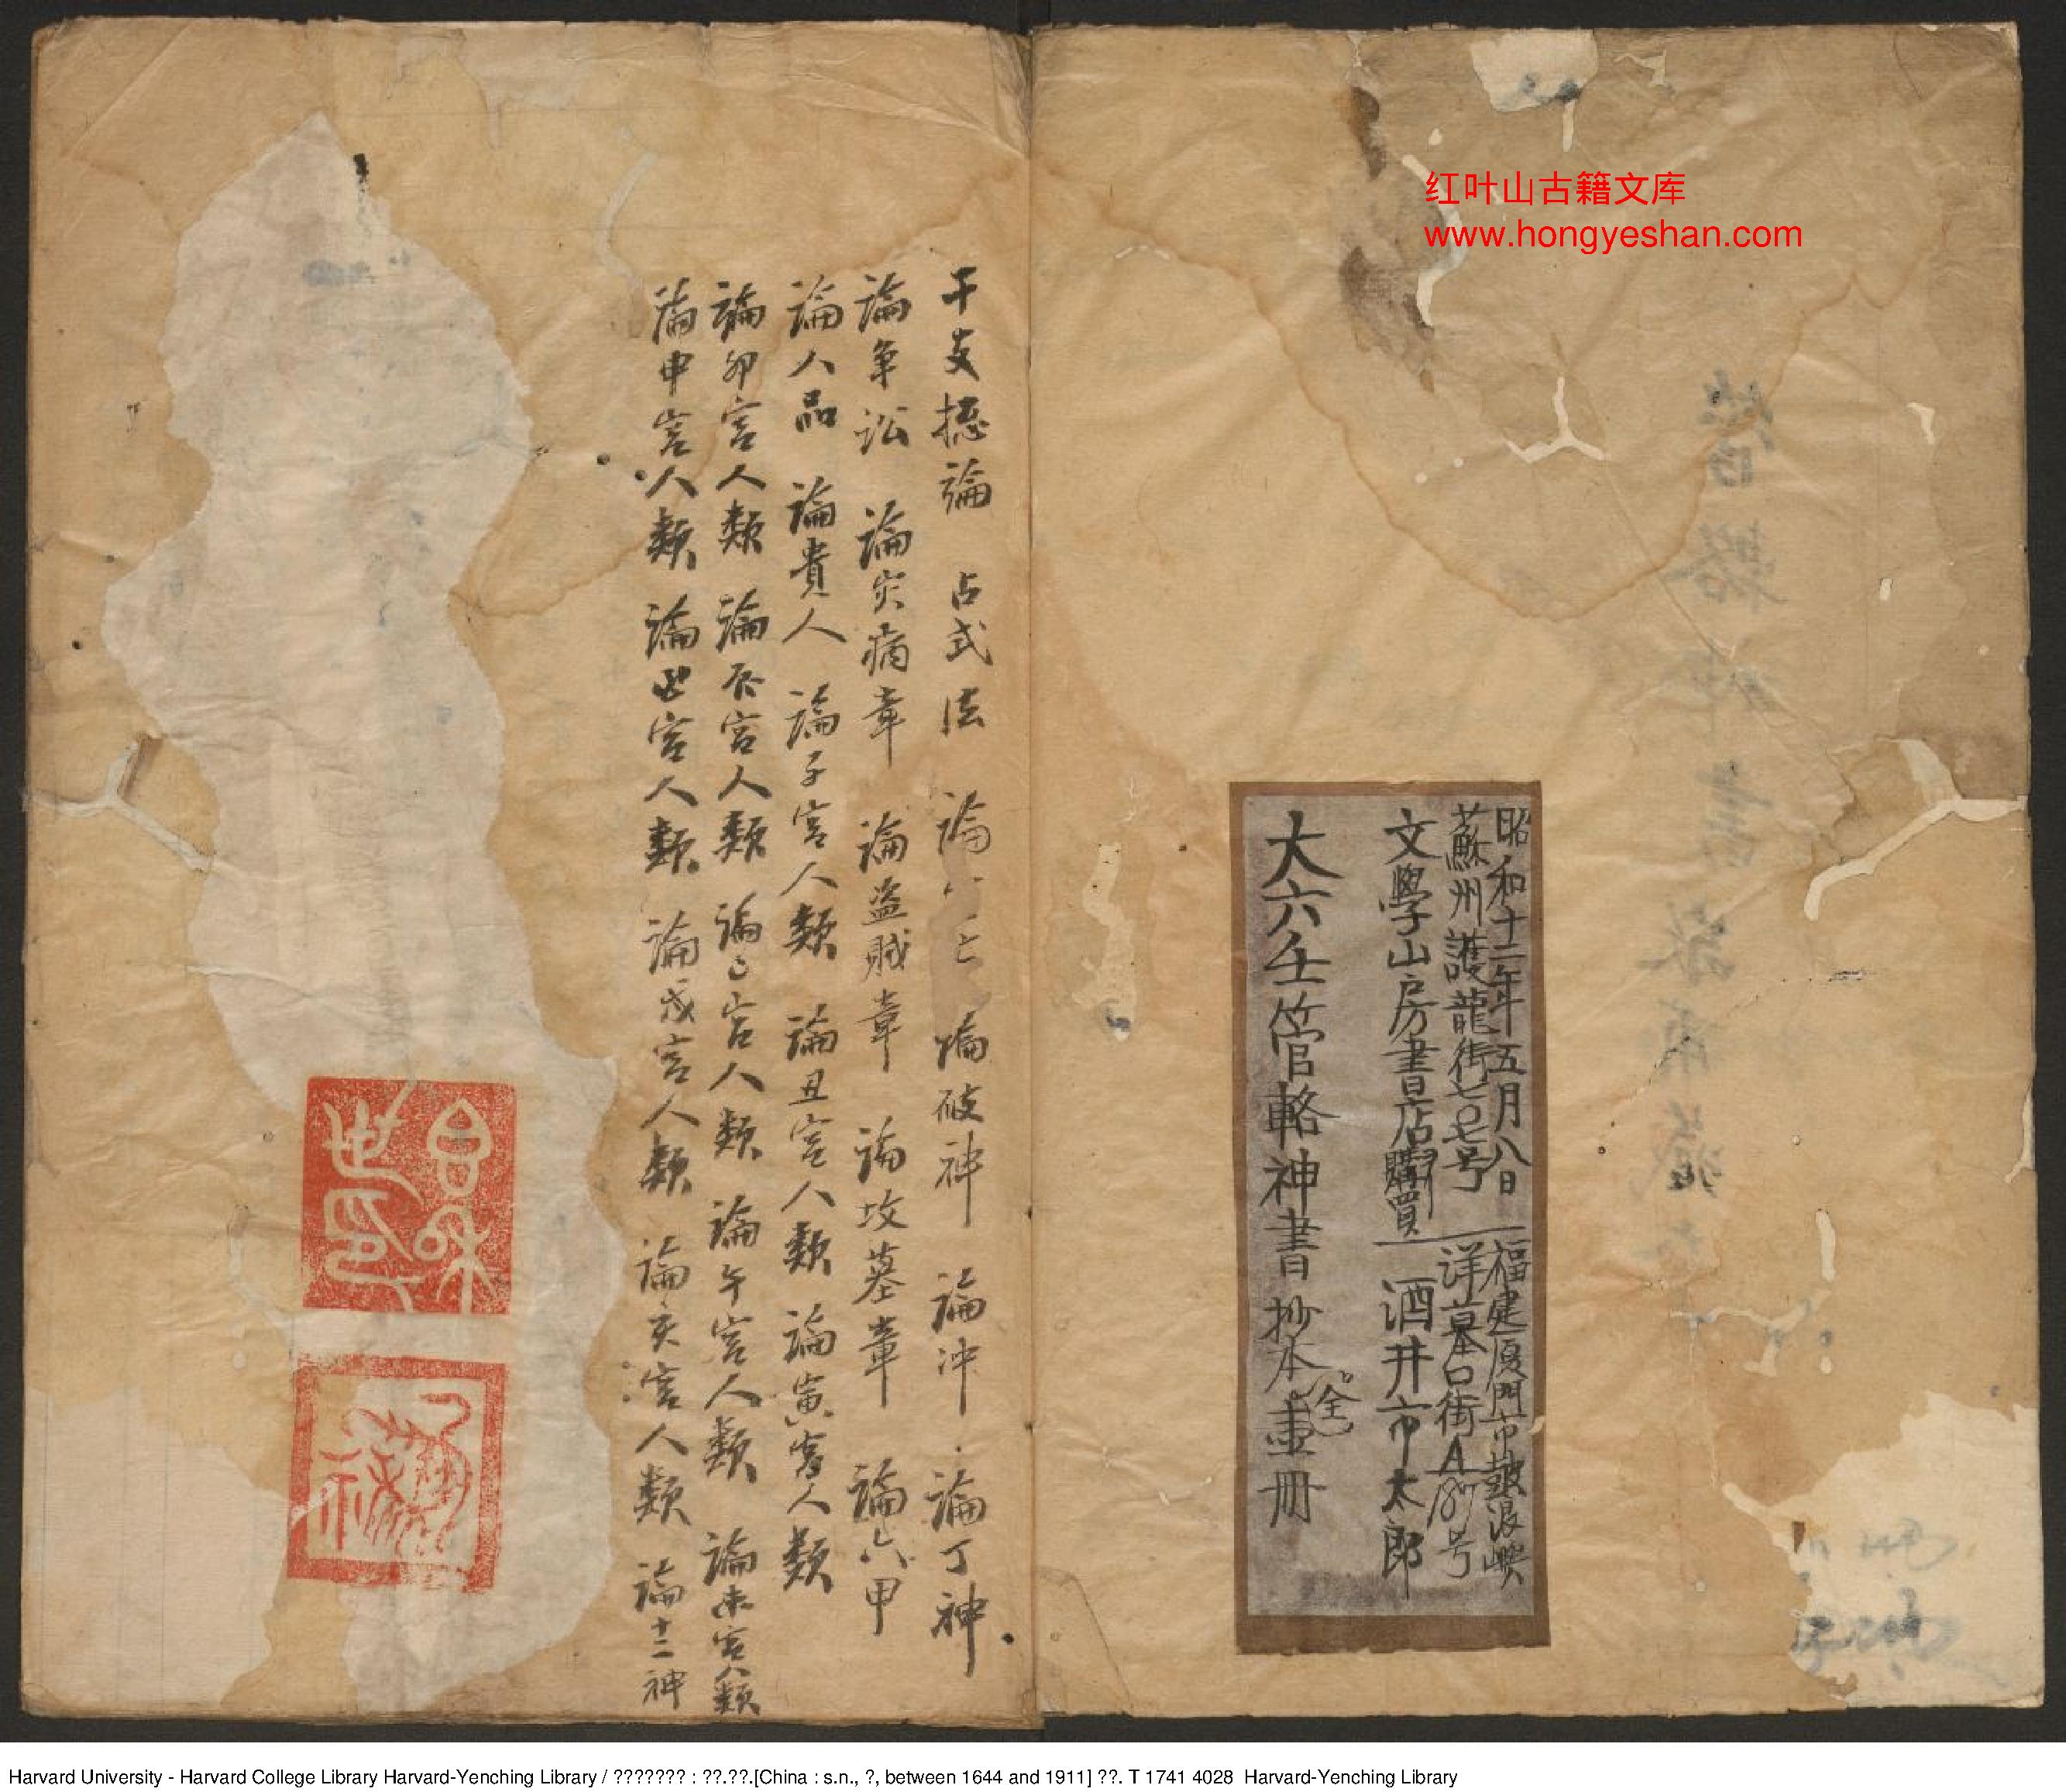 红叶山古籍文库
www.hongyeshan.com
昭和十二年五月八日
蘇州護龍街七〇七号
文學山房書店購買
福建厦門市鼓浪嶼
洋墓口街A187号
酒井市太郎
大六壬管輅神書抄本壹冊
全
干支揔論 占式法 論 論破神 論冲 論丁神
論争訟 論灾病章 論盗賊章 論坟墓章 論六甲
論人品 論貴人 論子宫人類 論丑宫人類 論寅宫人類
論卯宫人類 論辰宫人類 論巳宫人類 論午宫人類 論未宫人類
論申宫人類 論酉宫人類 論戌宫人類 論亥宫人類 論十二神
Harvard University - Harvard College Library Harvard-Yenching Library / ??????? : ??.??.[China : s.n., ?, between 1644 and 1911] ??. T 1741 4028 Harvard-Yenching Library